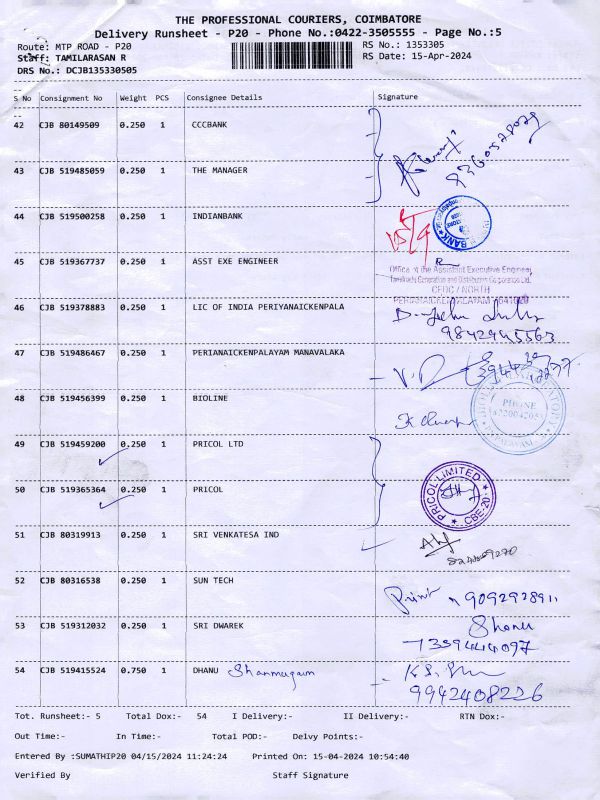 THE PROFESSIONAL COURIERS, COIMBATORE
Delivery Runsheet - P20 - Phone No.:0422-3505555 - Page No.:5
Route: MTP ROAD - P20 RS No.: 1353305
Staff: TAMILARASAN R RS Date: 15-Apr-2024
DRS No.: DCJB135330505
S No Consignment No Weight PCS Consignee Details Signature
42 CJB 80149509 0.250 1 CCCBANK
43 CJB 519485059 0.250 1 THE MANAGER
44 CJB 519500258 0.250 1 INDIANBANK
BANK
45 CJB 519367737 0.250 1 ASST EXE ENGINEER
Office of the Assistant Executive Engineer
Tamilnadu Generation and Distribution Corporation Ltd.
CEDC / NORTH
PERIANAICKENPALAYAM - 641020
46 CJB 519378883 0.250 1 LIC OF INDIA PERIYANAICKENPALA
9842945563
47 CJB 519486467 0.250 1 PERIANAICKENPALAYAM MANAVALAKA
48 CJB 519456399 0.250 1 BIOLINE
PHONE
49 CJB 519459200 0.250 1 PRICOL LTD
50 CJB 519365364 0.250 1 PRICOL
PRICOL LIMITED
CBE-20
51 CJB 80319913 0.250 1 SRI VENKATESA IND
52 CJB 80316538 0.250 1 SUN TECH
9092928911
53 CJB 519312032 0.250 1 SRI DWAREK
7359444097
54 CJB 519415524 0.750 1 DHANU Shanmugam
9942408226
Tot. Runsheet:- 5 Total Dox:- 54 I Delivery:- II Delivery:- RTN Dox:-
Out Time:- In Time:- Total POD:- Delvy Points:-
Entered By :SUMATHIP20 04/15/2024 11:24:24 Printed On: 15-04-2024 10:54:40
Verified By Staff Signature